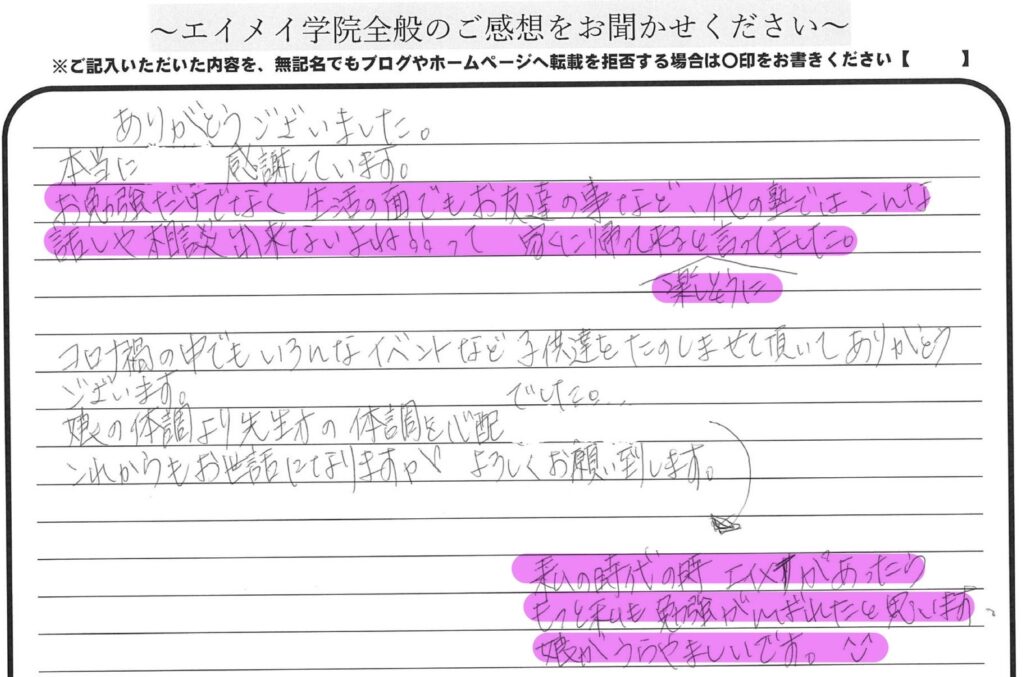 ～エイメイ学院全般のご感想をお聞かせください～
※ご記入いただいた内容を、無記名でもブログやホームページへ転載を拒否する場合は〇印をお書きください【　　】
ありがとうございました。
本当に　感謝しています。
お勉強だけでなく 生活の面でもお友達の事など、他の塾ではこんな
話しや相談出来ないよね!!って 家に帰って来ると言ってました。
楽しそうに
コロナ禍の中でもいろんなイベントなど子供達をたのしませて頂いてありがとう
ございます。
でした。...
娘の体調より先生方の体調を心配
これからもお世話になりますが よろしくお願い致します。
私の時代の時 エイメイがあったら
もっと私も勉強がんばれたと思います。
娘がうらやましいです。